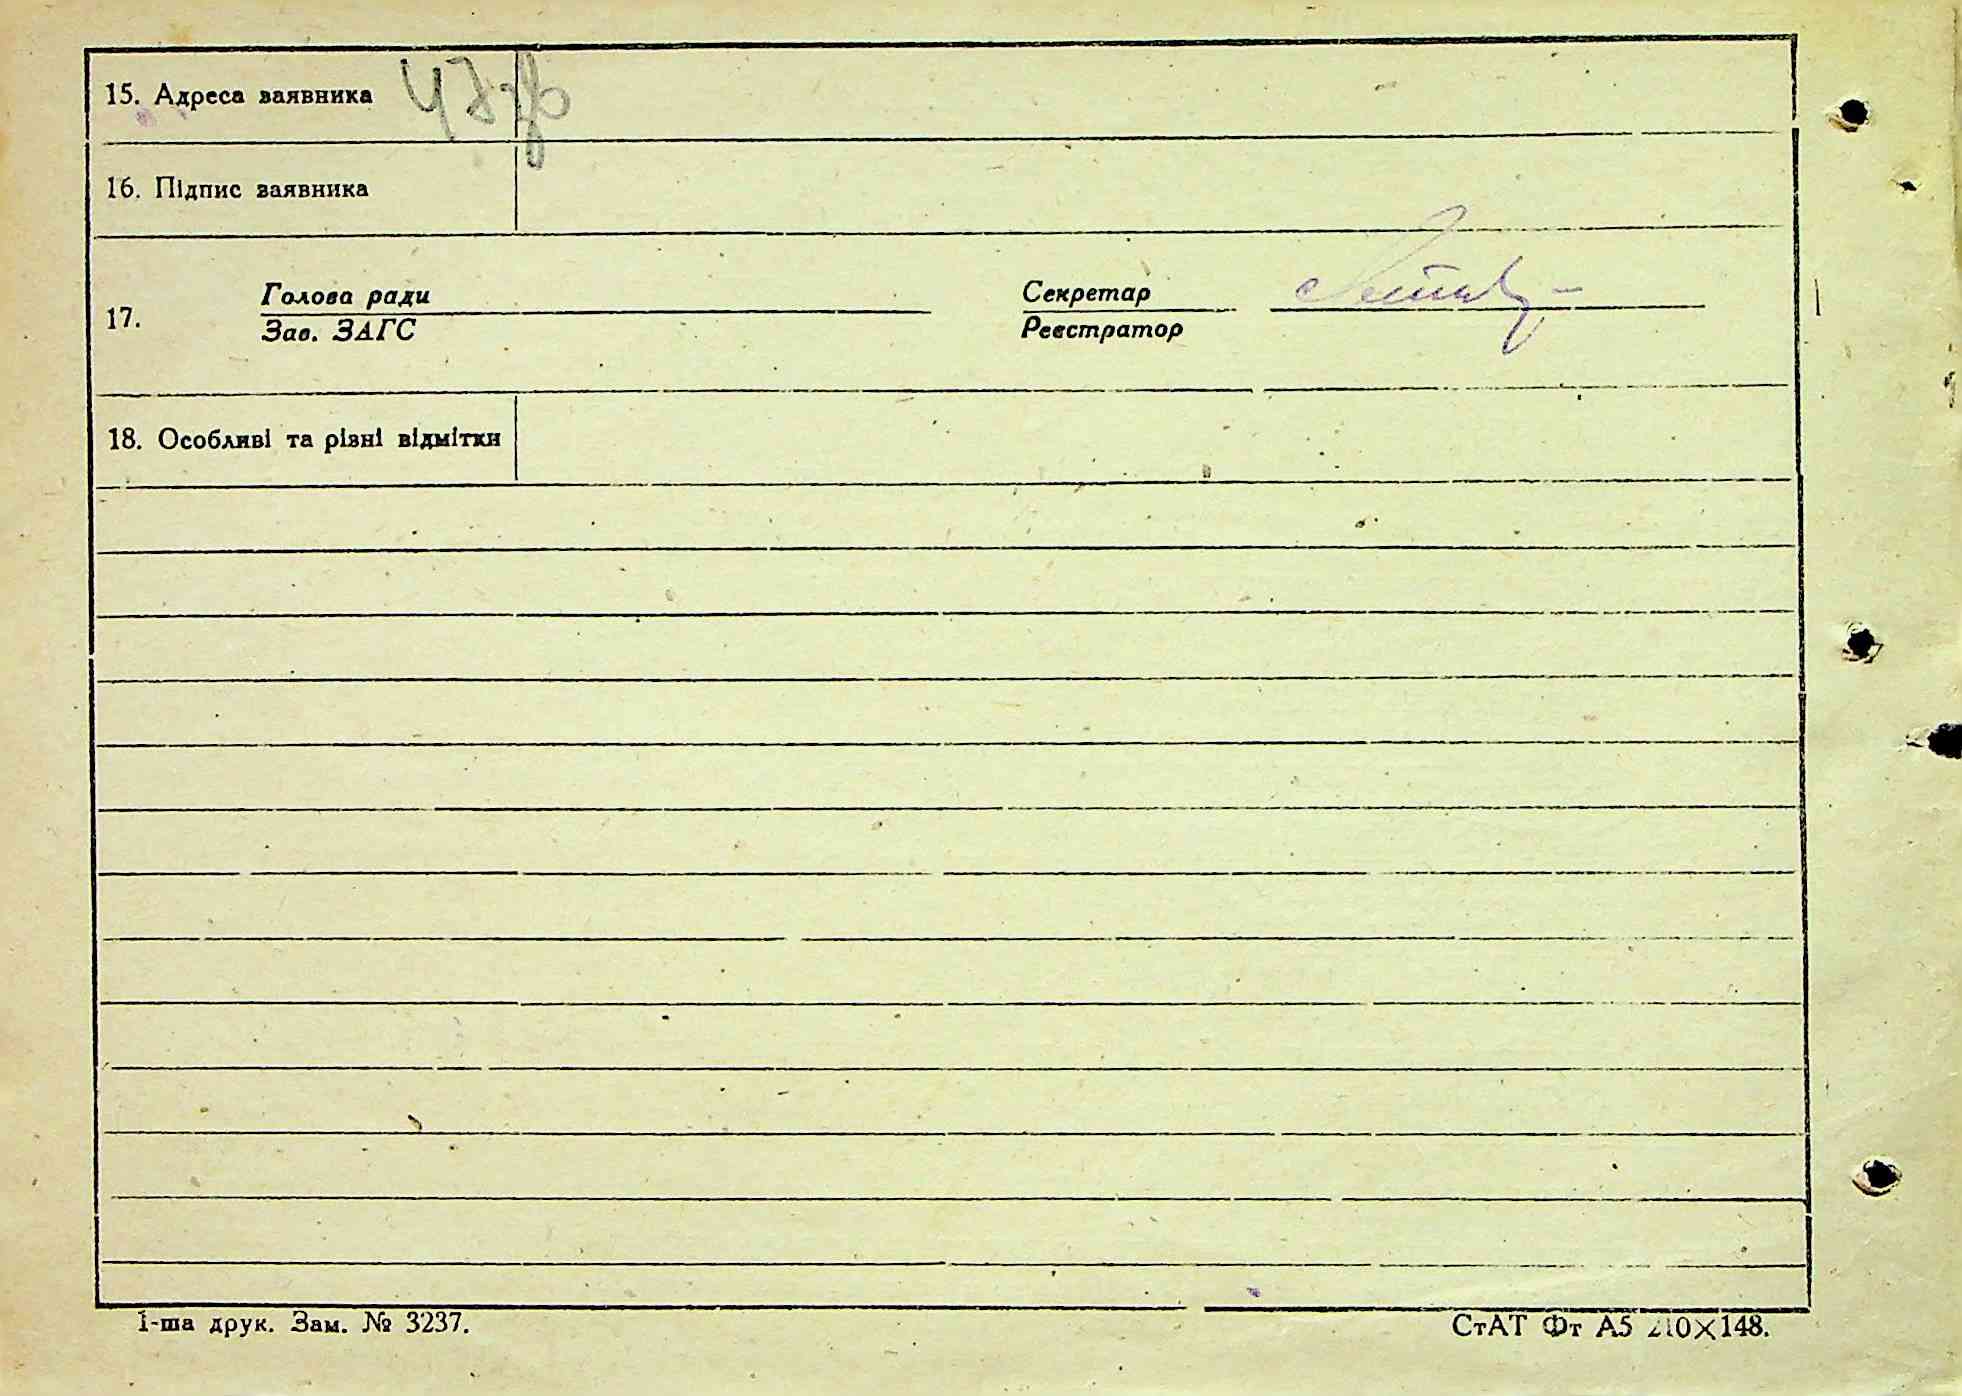 15. Адреса заявника
16. Підпис заявника
Голова ради
17.
Зав. ЗАГС
Секретар
Реєстратор
18. Особливі та різні відмітки
1-ша друк. Зам. № 3237.
СтАТ Фт А5 210×148.